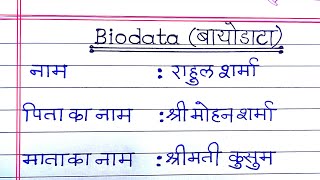 Biodata (बायोडाटा)
नाम : राहुल शर्मा
पिता का नाम : श्री मोहन शर्मा
माता का नाम : श्रीमती कुसुम